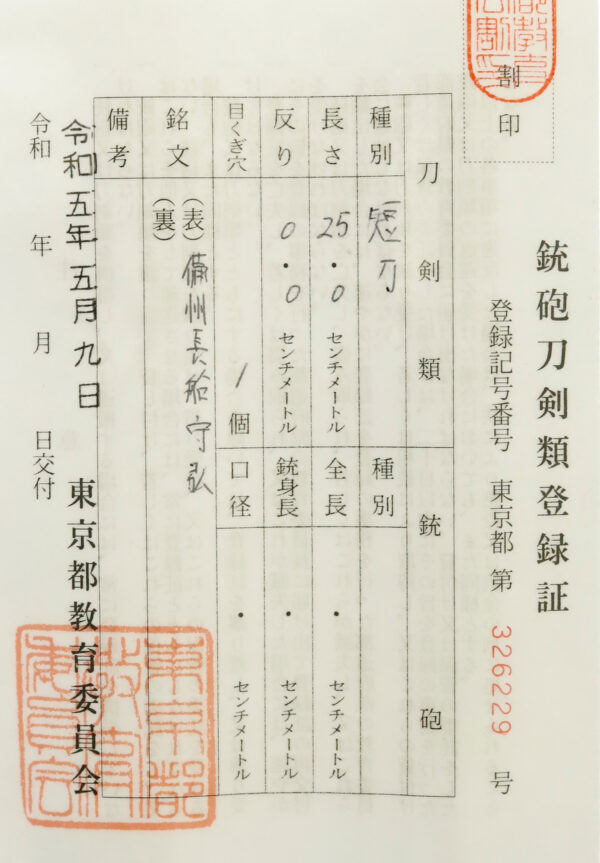 割印
銃砲刀剣類登録証
登録記号番号 東京都 第 326229 号
刀剣類
銃砲
種別 短刀
種別
長さ 25.0 センチメートル
全長 ・ センチメートル
反り 0.0 センチメートル
銃身長 ・ センチメートル
目くぎ穴 1 個
口径 ・ センチメートル
銘文 (表) 備州長船守弘
(裏)
備考
令和五年五月九日
令和 年 月 日交付
東京都教育委員会
東京都教育委員会